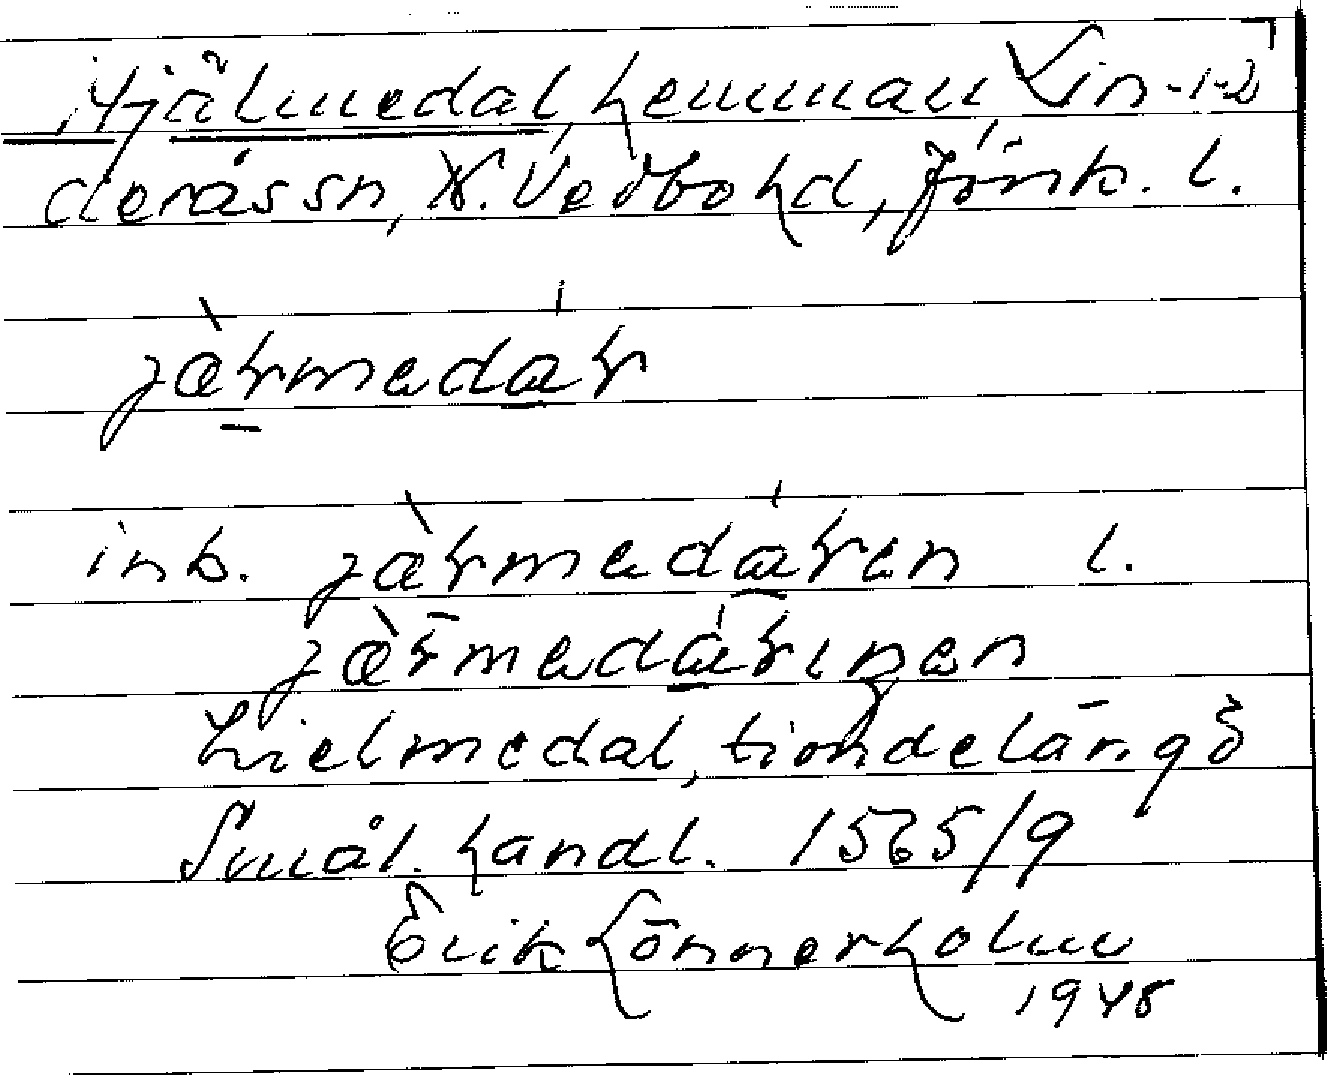 Hjälmedal, hemman Lin- 1-2
deråssn, N. Vedbohd, Jönk. l.
jàrmedár
inb. jàrmedáren l.
jàrmedárinen
hielmedal, tiondelängd
Smål. handl. 1565/9
Erik Lönnerholm
1948